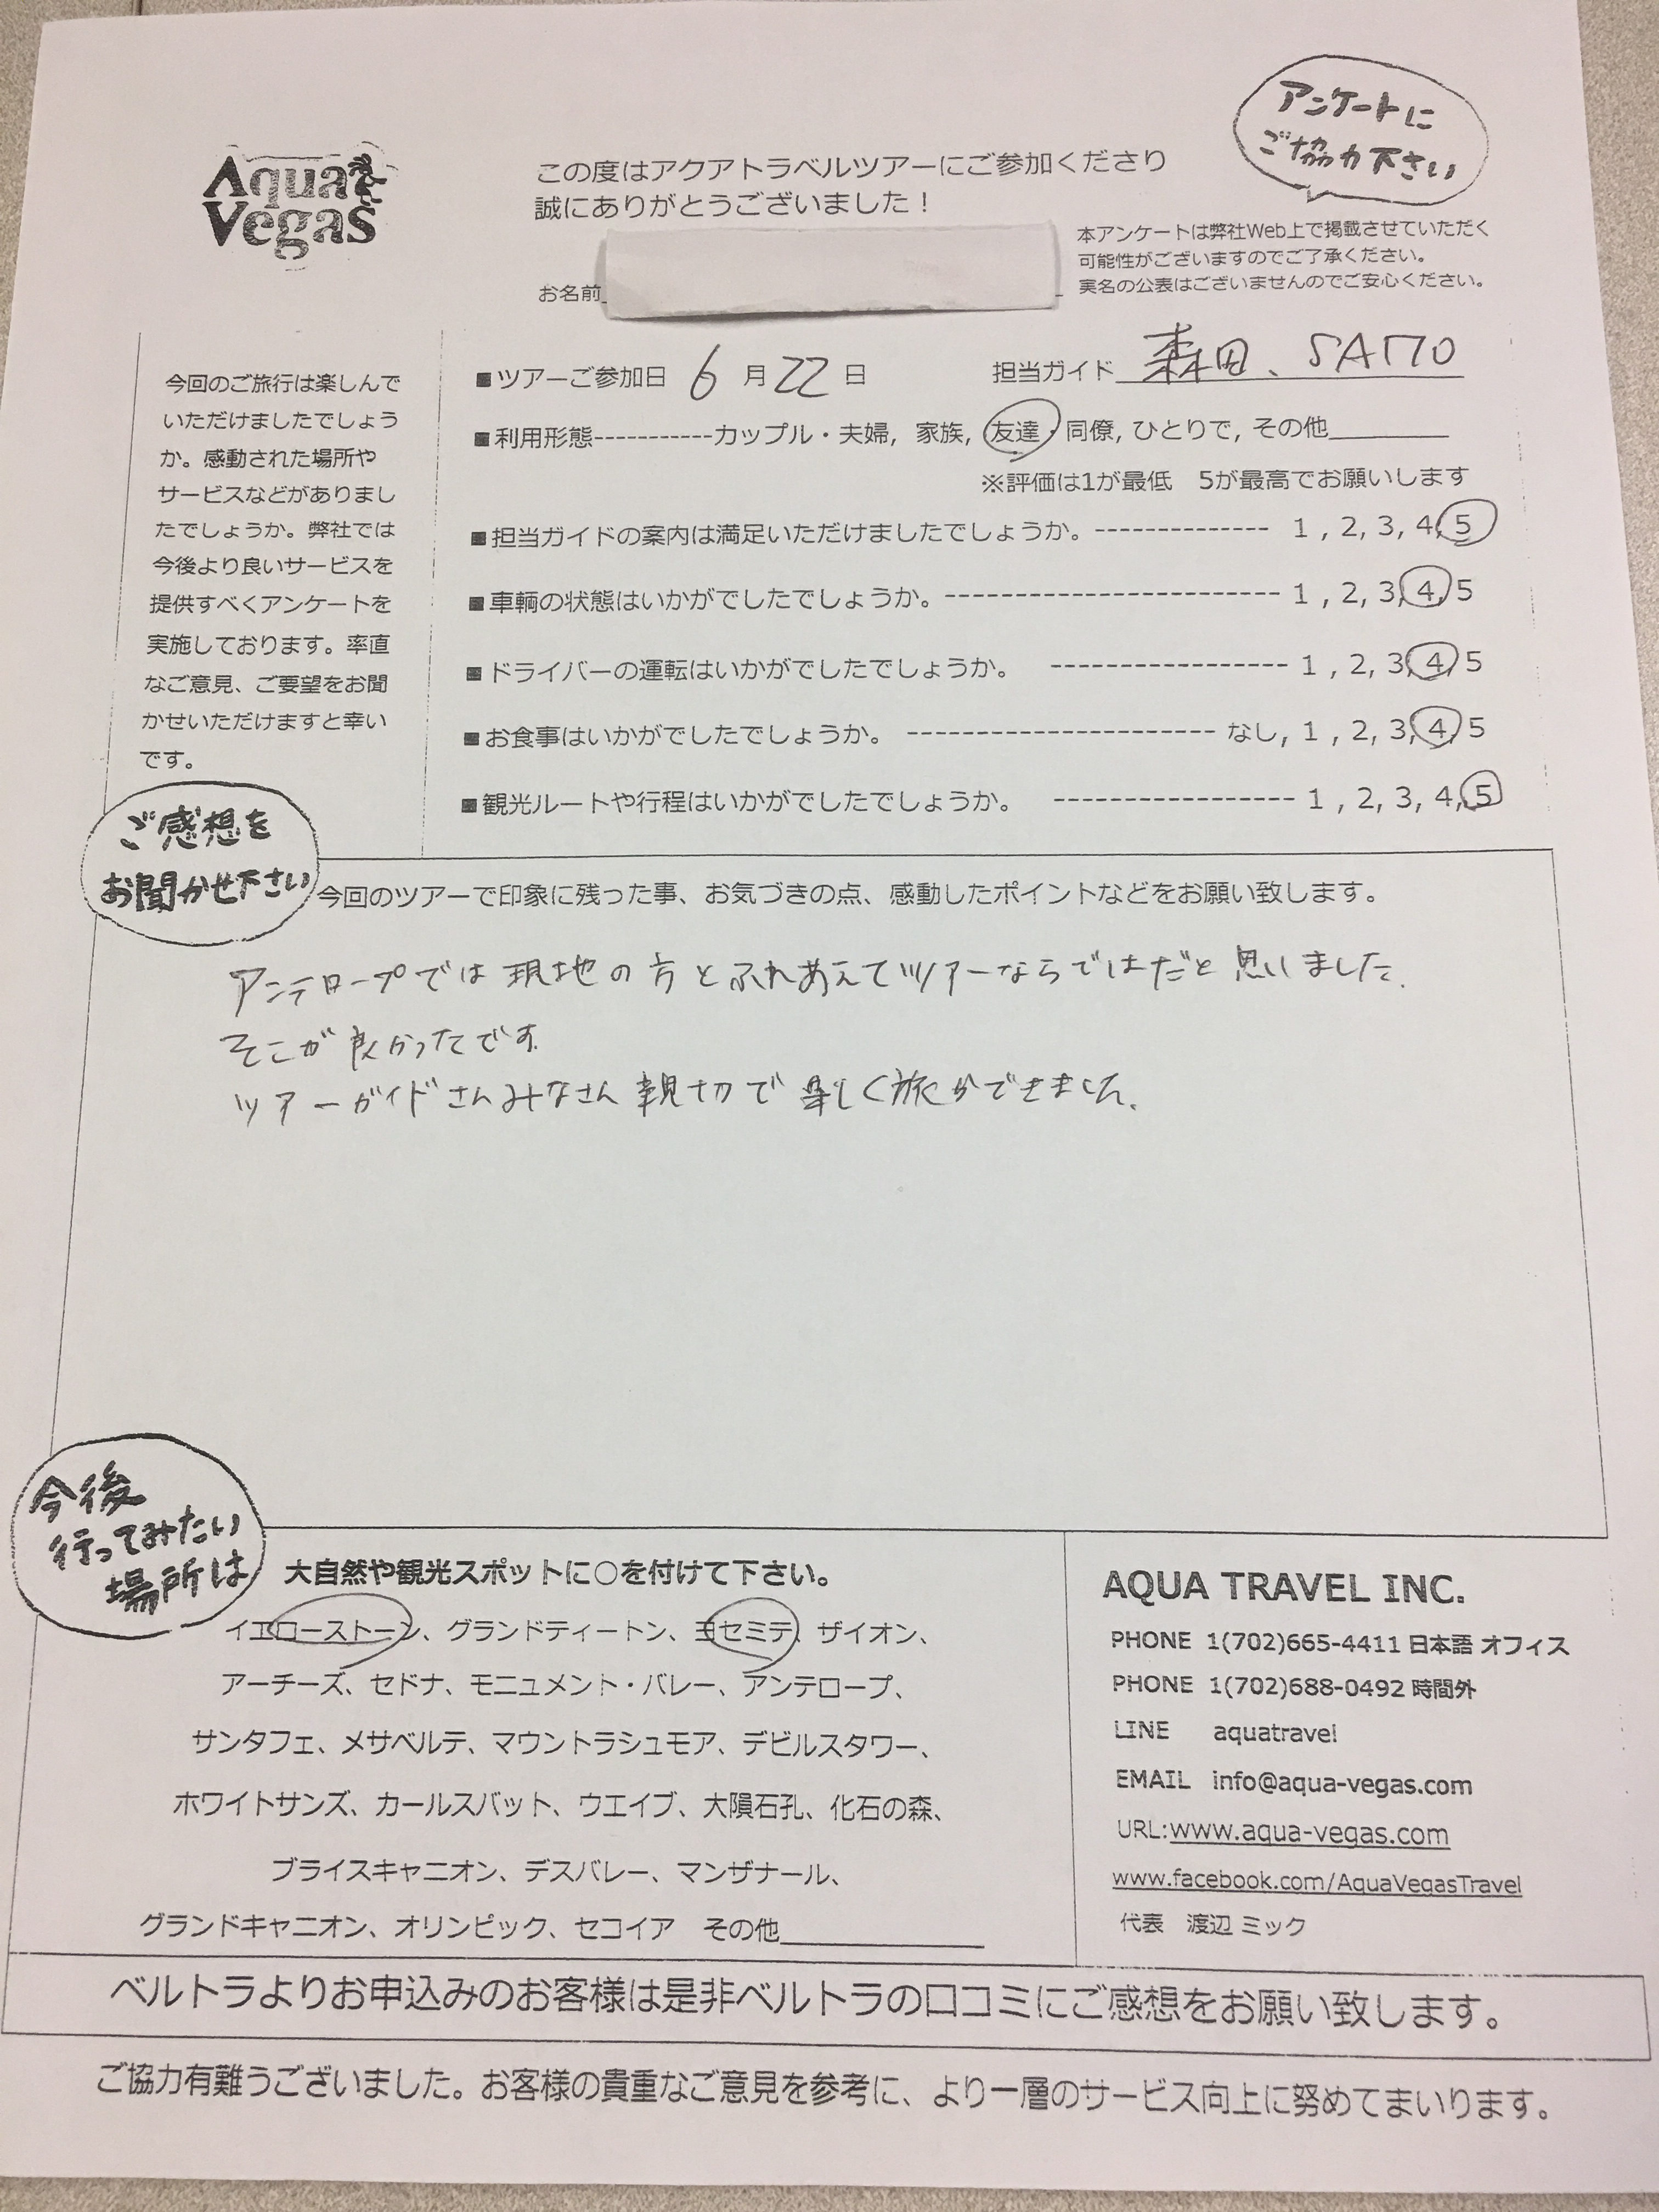 アンケートに
ご協力下さい
Aqua
Vegas
この度はアクアトラベルツアーにご参加くださり
誠にありがとうございました！
本アンケートは弊社Web上で掲載させていただく
可能性がございますのでご了承ください。
実名の公表はございませんのでご安心ください。
お名前
今回のご旅行は楽しんで
いただけましたでしょう
か。感動された場所や
サービスなどがありまし
たでしょうか。弊社では
今後より良いサービスを
提供すべくアンケートを
実施しております。率直
なご意見、ご要望をお聞
かせいただけますと幸い
です。
■ツアーご参加日 6月22日 担当ガイド 森田、SAITO
■利用形態-----------カップル・夫婦, 家族, 友達・同僚, ひとりで, その他
※評価は1が最低 5が最高でお願いします
■担当ガイドの案内は満足いただけましたでしょうか。------------- 1 , 2, 3, 4, 5
■車輌の状態はいかがでしたでしょうか。------------------------ 1 , 2, 3, 4, 5
■ドライバーの運転はいかがでしたでしょうか。 ----------------- 1 , 2, 3, 4, 5
■お食事はいかがでしたでしょうか。 ---------------------- なし, 1 , 2, 3, 4, 5
■観光ルートや行程はいかがでしたでしょうか。 ----------------- 1 , 2, 3, 4, 5
ご感想を
お聞かせ下さい
今回のツアーで印象に残った事、お気づきの点、感動したポイントなどをお願い致します。
アンテロープでは現地の方とふれあえてツアーならではだと思いました.
そこが良かったです.
ツアーガイドさんみなさん親切で楽しく旅ができました.
今後
行ってみたい
場所は
大自然や観光スポットに○を付けて下さい。
イエローストーン、グランドティートン、ヨセミテ、ザイオン、
アーチーズ、セドナ、モニュメント・バレー、アンテロープ、
サンタフェ、メサベルテ、マウントラシュモア、デビルスタワー、
ホワイトサンズ、カールスバット、ウエイブ、大隕石孔、化石の森、
ブライスキャニオン、デスバレー、マンザナール、
グランドキャニオン、オリンピック、セコイア その他
AQUA TRAVEL INC.
PHONE 1(702)665-4411 日本語 オフィス
PHONE 1(702)688-0492 時間外
LINE aquatravel
EMAIL info@aqua-vegas.com
URL:www.aqua-vegas.com
www.facebook.com/AquaVegasTravel
代表 渡辺 ミック
ベルトラよりお申込みのお客様は是非ベルトラの口コミにご感想をお願い致します。
ご協力有難うございました。お客様の貴重なご意見を参考に、より一層のサービス向上に努めてまいります。